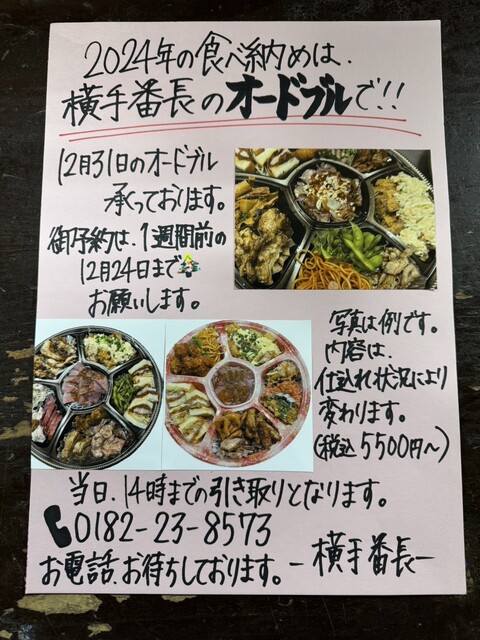 2024年の食べ納めは、
横手番長のオードブルで!!
12月31日のオードブル
承っております。
御予約は、1週間前の
12月24日まで
お願いします。
写真は例です。
内容は、
仕込れ状況により
変わります。
(税込5500円～)
当日、14時までの引き取りとなります。
0182-23-8573
お電話、お待ちしております。-横手番長-